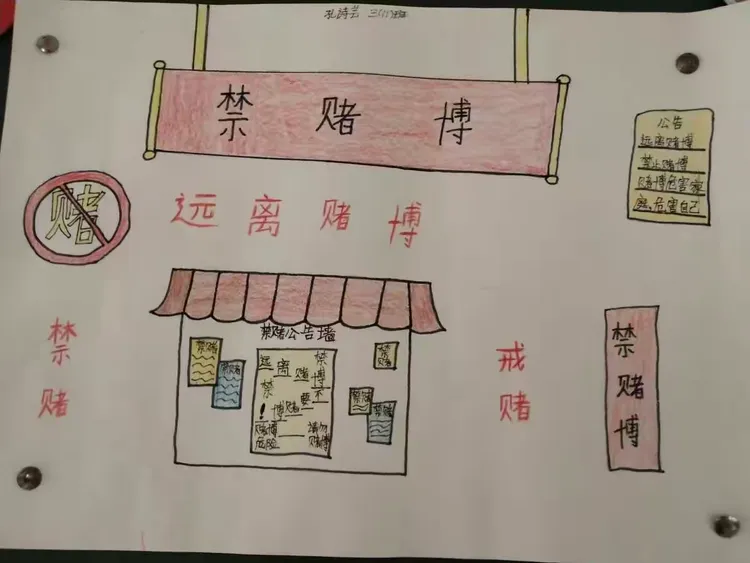 禁赌博
公告
远离赌博
禁止赌博
赌博危害家
庭、危害自己
赌
远离赌博
禁赌公告墙
禁赌
禁赌
禁赌
禁赌
禁赌
赌博
危险
请勿
赌博
禁赌
戒赌
禁赌博